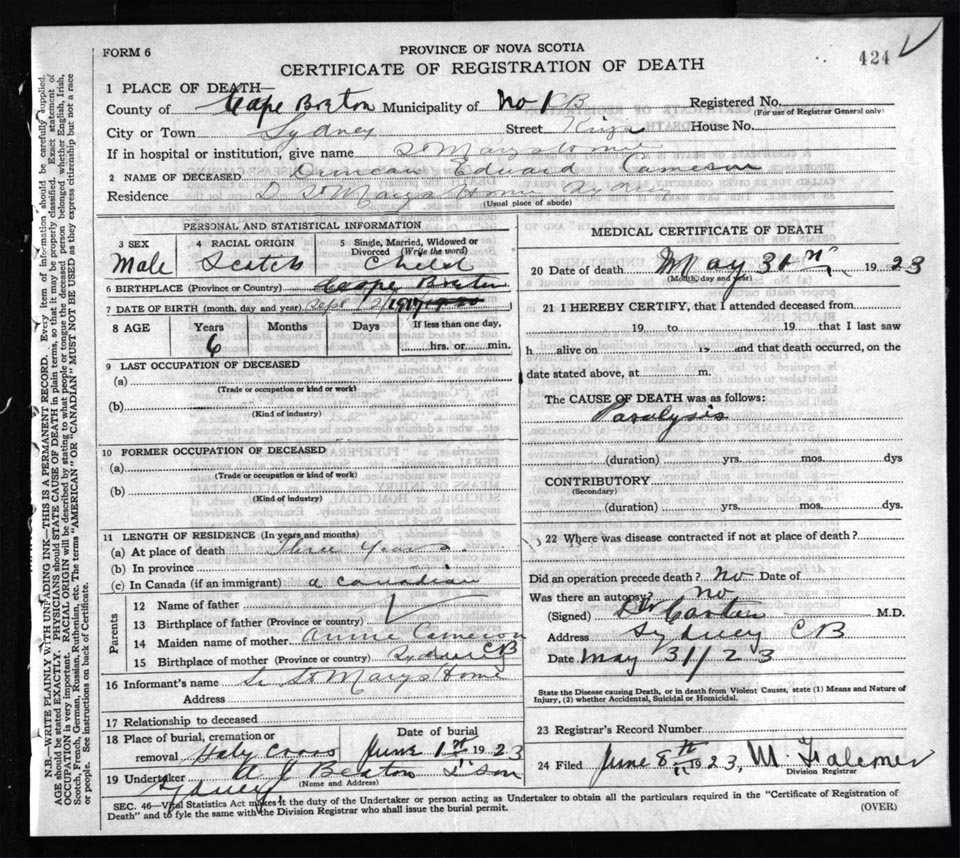 FORM 6
PROVINCE OF NOVA SCOTIA
424
CERTIFICATE OF REGISTRATION OF DEATH
1 PLACE OF DEATH—
County of Cape Breton Municipality of No 1 CB Registered No.
(For use of Registrar General only)
City or Town Sydney Street Kings House No.
If in hospital or institution, give name St Marys Home
2 NAME OF DECEASED Duncan Edward Cameron
Residence St Marys Home Sydney
(Usual place of abode)
PERSONAL AND STATISTICAL INFORMATION
3 SEX
Male
4 RACIAL ORIGIN
Scotch
5 Single, Married, Widowed or
Divorced (Write the word)
Child
6 BIRTHPLACE (Province or Country) Cape Breton
7 DATE OF BIRTH (month, day and year) Sept 12 1917
8 AGE
Years
6
Months
Days
If less than one day,
hrs. or min.
9 LAST OCCUPATION OF DECEASED
(a)
(Trade or occupation or kind or work)
(b)
(Kind of industry)
10 FORMER OCCUPATION OF DECEASED
(a)
(Trade or occupation or kind of work)
(b)
(Kind of industry)
11 LENGTH OF RESIDENCE (In years and months)
(a) At place of death Three Years
(b) In province
(c) In Canada (if an immigrant) a Canadian
Parents
12 Name of father
13 Birthplace of father (Province or country)
14 Maiden name of mother Annie Cameron
15 Birthplace of mother (Province or country) Sydney CB
16 Informant's name Sr St Marys Home
Address
17 Relationship to deceased
18 Place of burial, cremation or
removal Holy Cross
Date of burial
June 1st 1923
19 Undertaker A J Beaton & Son
(Name and Address)
Sydney
MEDICAL CERTIFICATE OF DEATH
20 Date of death May 31 1923
(Month, day and year)
21 I HEREBY CERTIFY, that I attended deceased from
19 to 19 that I last saw
h alive on 19 and that death occurred, on the
date stated above, at m.
The CAUSE OF DEATH was as follows:
Paralysis
(duration) yrs. mos. dys
CONTRIBUTORY
(Secondary)
(duration) yrs. mos. dys.
22 Where was disease contracted if not at place of death?
Did an operation precede death? No Date of
Was there an autopsy? no
(Signed) M.D.
Address Sydney CB
Date May 31/23
State the Disease causing Death, or in death from Violent Causes, state (1) Means and Nature of
Injury, (2) whether Accidental, Suicidal or Homicidal.
23 Registrar's Record Number
24 Filed June 8th 1923, M. Falconer
Division Registrar
SEC. 46—Vital Statistics Act makes it the duty of the Undertaker or person acting as Undertaker to obtain all the particulars required in the "Certificate of Registration of
Death" and to fyle the same with the Division Registrar who shall issue the burial permit.
(OVER)
N.B.—WRITE PLAINLY WITH UNFADING INK—THIS IS A PERMANENT RECORD. Every item of information should be carefully supplied.
AGE should be stated EXACTLY. PHYSICIANS should STATE CAUSE OF DEATH in plain terms, so that it may be properly classified. Exact statement of
OCCUPATION is very important. RACIAL ORIGIN will be described by stating to what people or tongue the deceased person belonged whether English, Irish,
Scotch, French, German, Russian, Ruthenian, etc. The terms "AMERICAN" OR "CANADIAN" MUST NOT BE USED as they express citizenship but not a race
or people. See instructions on back of Certificate.